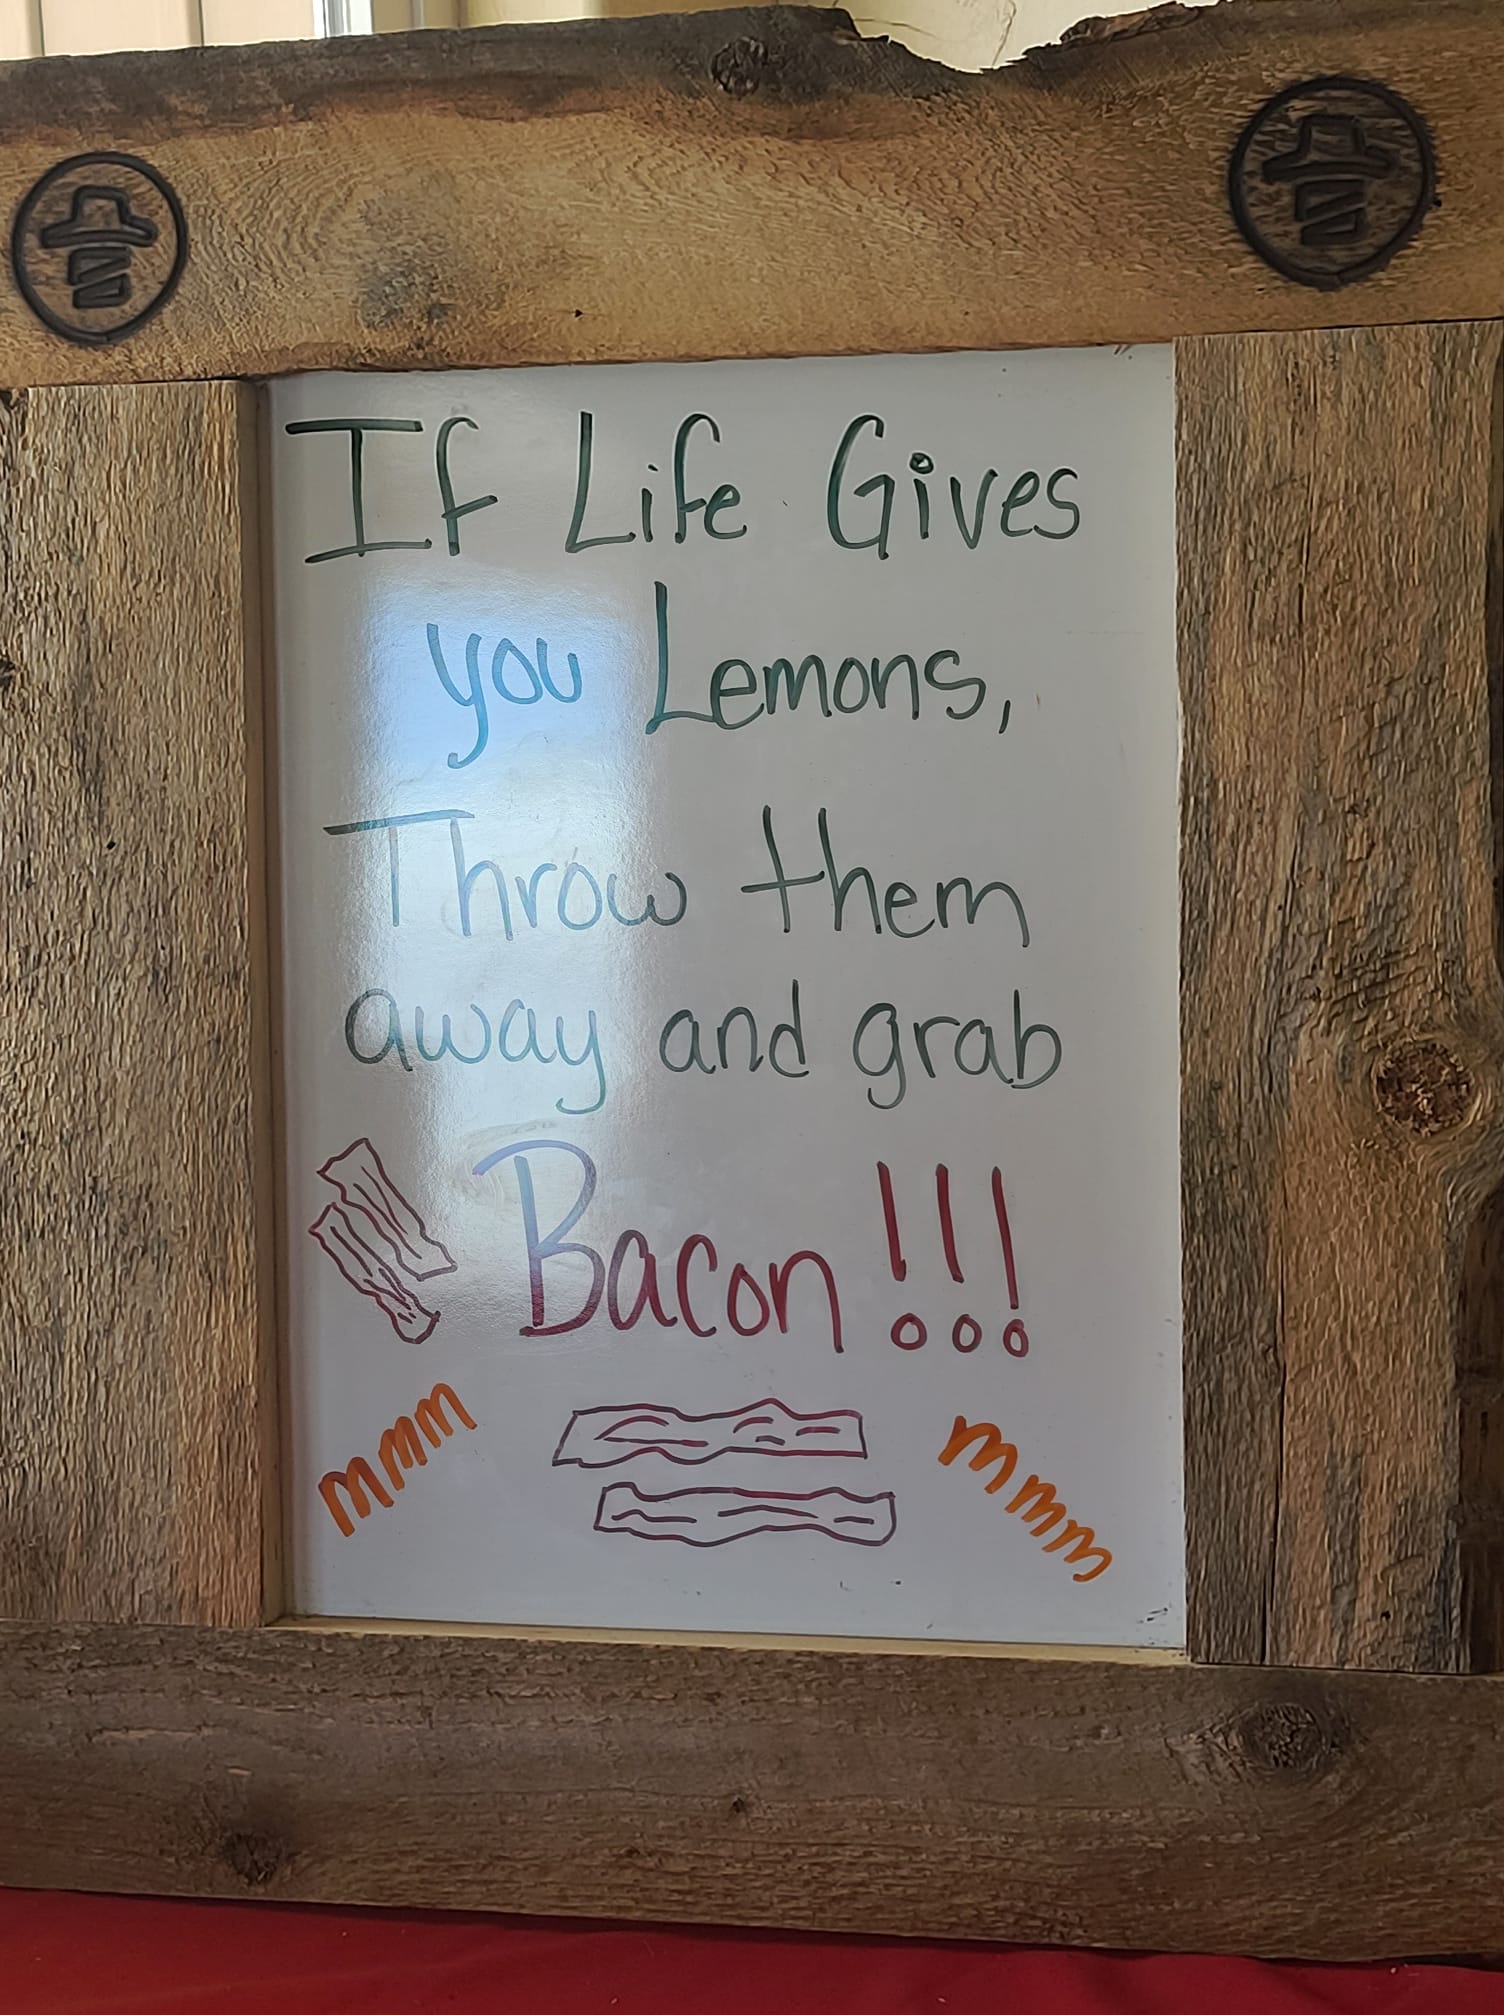 If Life Gives
you Lemons,
Throw them
away and grab
Bacon!!!
mmm
mmm